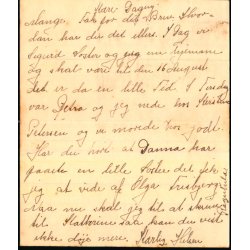 Kære Dagny
Mange Tak for det Brev. Hvor-
dan har du det ellers. I Dag er
Sigurd Foster og jeg en Tylmann
og skal være til den 16 August
det er da en lille Tid. I Tirsdag
var Petra og jeg nede hos Kirstine
Petersen og vi morede os godt.
Har du hørt at Danna har
faaet en lille Søster det fik
jeg at vide af Olga Frisbjerg
naa nu skal jeg til at skrive
til Kathrine saa kan du vist
ikke døje mere. Kærlig Hilsen